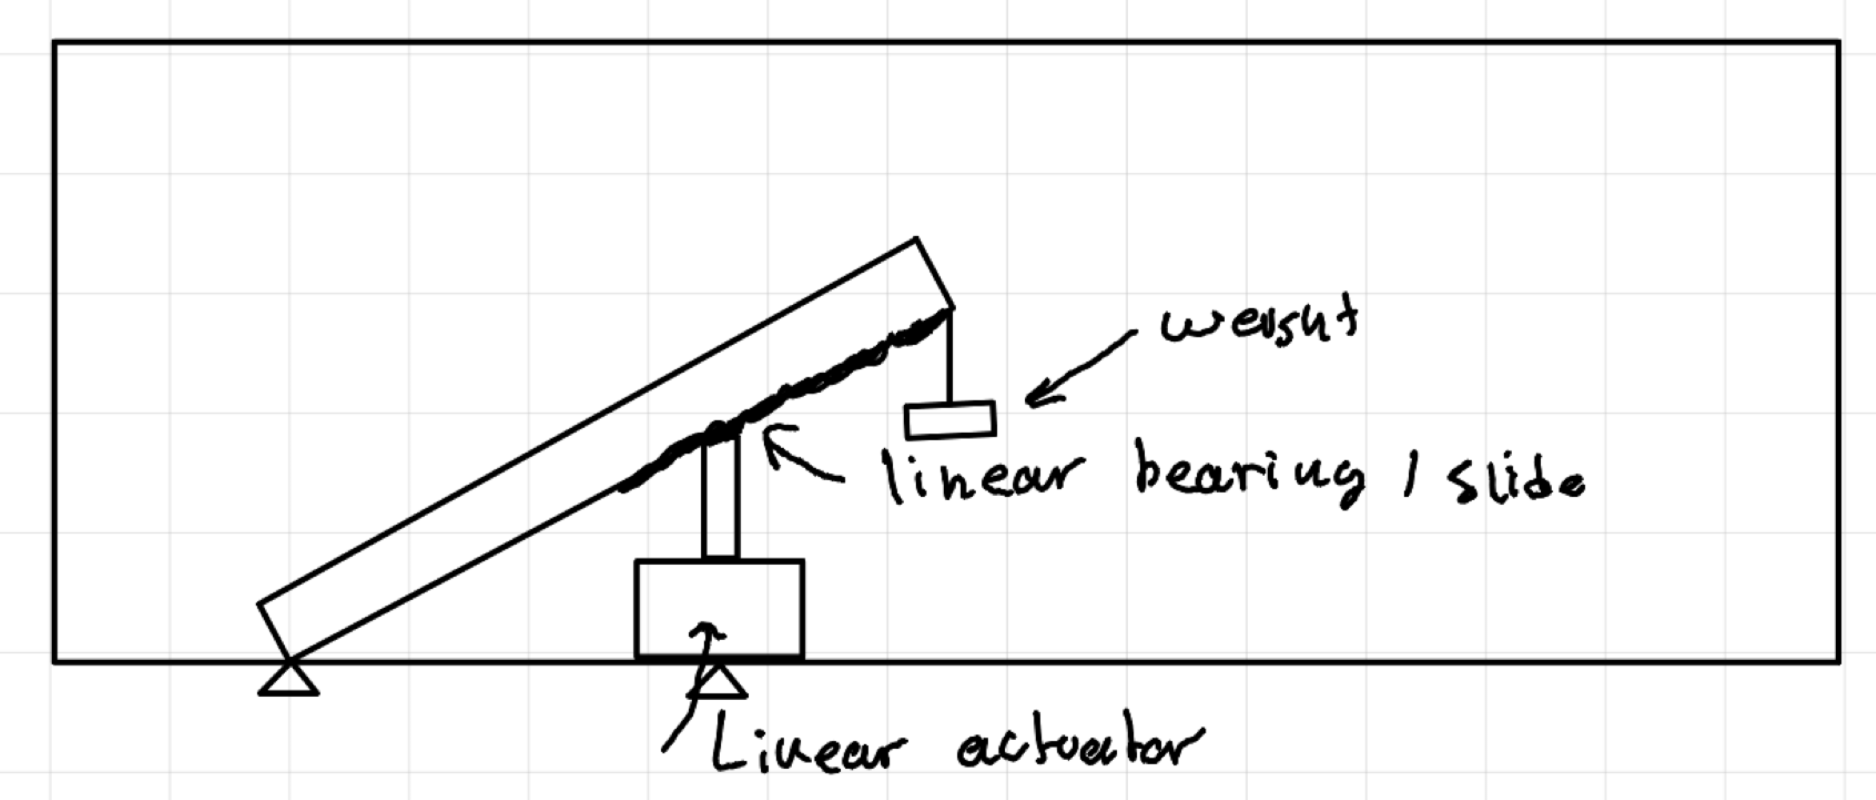 weight
linear bearing / slide
Linear actuator